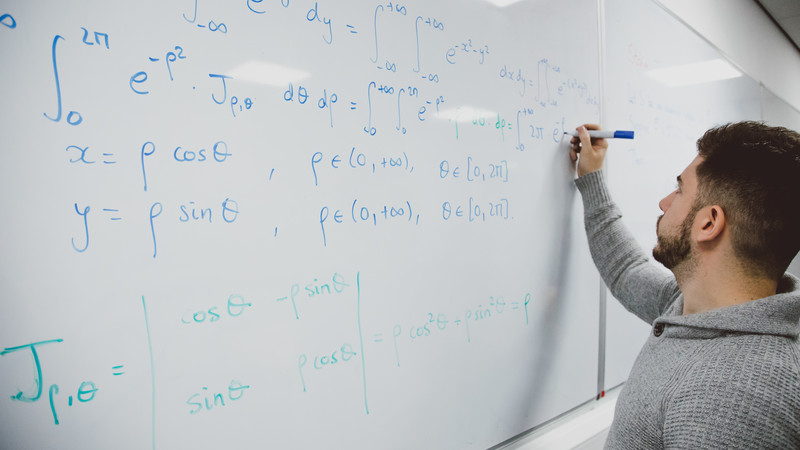 ∫_{-∞} e dy = ∫_{-∞}^{+∞} ∫_{-∞}^{+∞} e^{-x²-y²} dx dy =
∫_0^{2π} e^{-ρ²} · J_{ρ,θ} dθ dρ = ∫_0^{+∞} ∫_0^{2π} e^{-ρ²} ρ dθ dρ = ∫_0^{+∞} 2π e
x = ρ cosθ , ρ∈(0,+∞), θ∈[0,2π]
y = ρ sinθ , ρ∈(0,+∞), θ∈[0,2π].
J_{ρ,θ} = | cosθ -ρsinθ
sinθ ρcosθ | = ρcos²θ+ρsin²θ=ρ